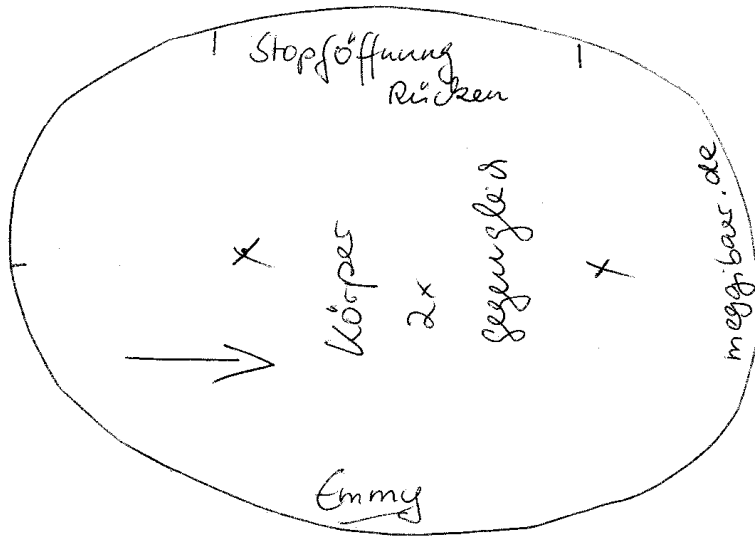 Stopföffnung
Rücken
Körper
2x
gegengleich
meggibaer.de
Emmy